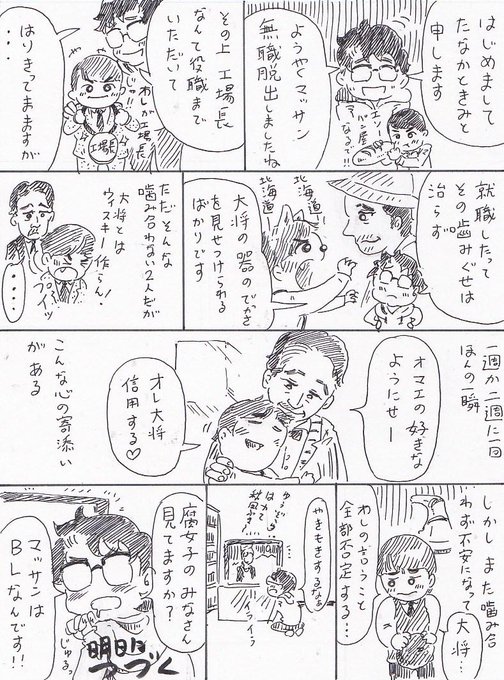 はじめまして
たなかときみと
申します
ようやくマッサン
無職脱出しましたね
その上 工場長
なんて役職まで
いただいて
わしが工場長
じゃ
工場長
はりきってますが
・・・
就職したって
その歯みぐせは
治らず
北海道!
北海道
大将の器のでっかさ
を見せつけられる
ばかりです
ただそんな
噛み合わない2人だが
大将とは
ウィスキー作らん!
プイッ
・・・・
一週か二週に一回
ほんの一瞬
オマエの好きな
ようにせー
オレ大将
信用する♡
こんな心の寄添い
がある
しかし また噛み合
わず不安になって
大将…
わしの言うこと
全部不定する…
やきもきするなぁ
イライラ
腐女子のみなさん
見てますか?
マッサンは
BLなんです!!
じゅるっ
明日に
つづく